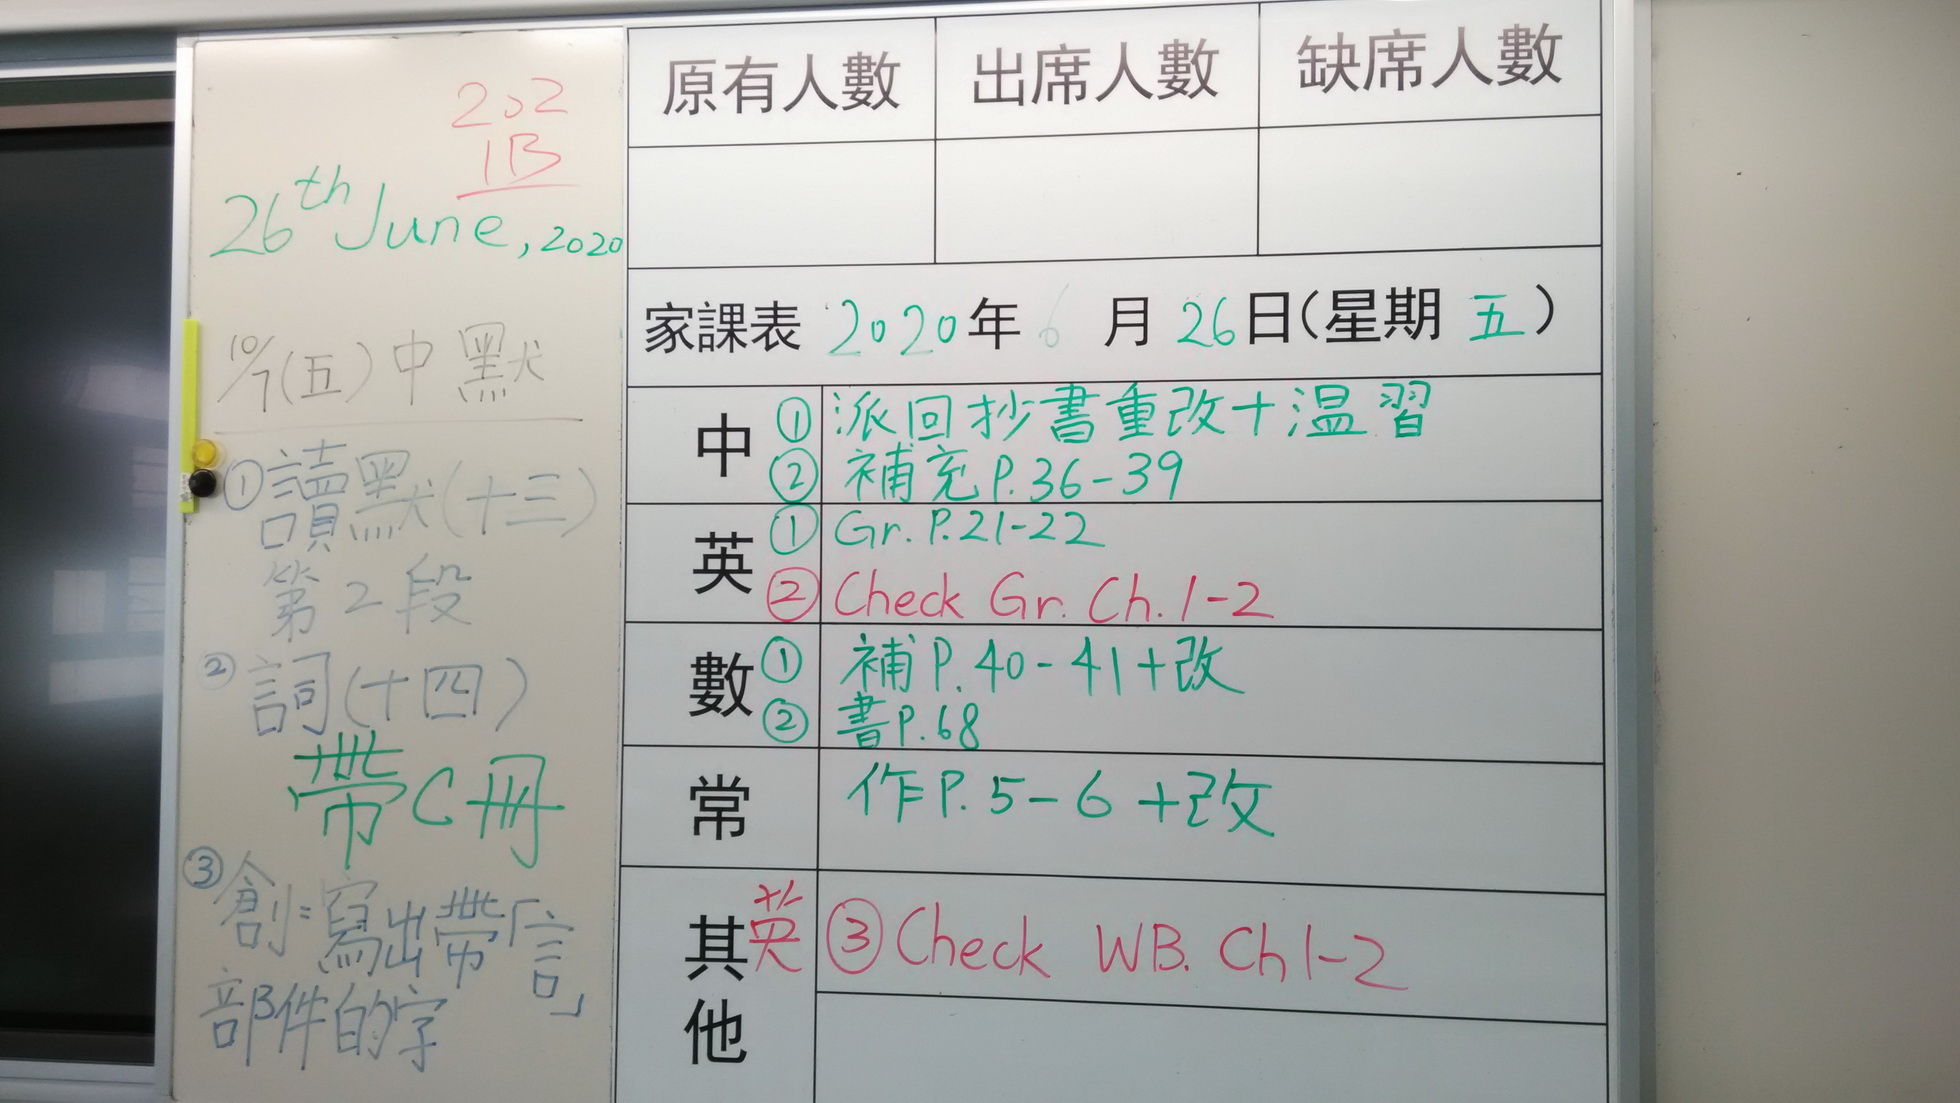 202
1B
26th June, 2020
10/7(五)中默
①讀默(十三)
第2段
②詞(十四)
帶C冊
③創:寫出帶「言」
部件的字
原有人數 出席人數 缺席人數
家課表 2020年6月26日(星期五)
中 ①派回抄書重改+温習
②補充P.36-39
英 ①Gr. P.21-22
②Check Gr. Ch. 1-2
數 ①補P.40-41+改
②書P.68
常 作P.5-6+改
其他 英 ③Check WB. Ch1-2